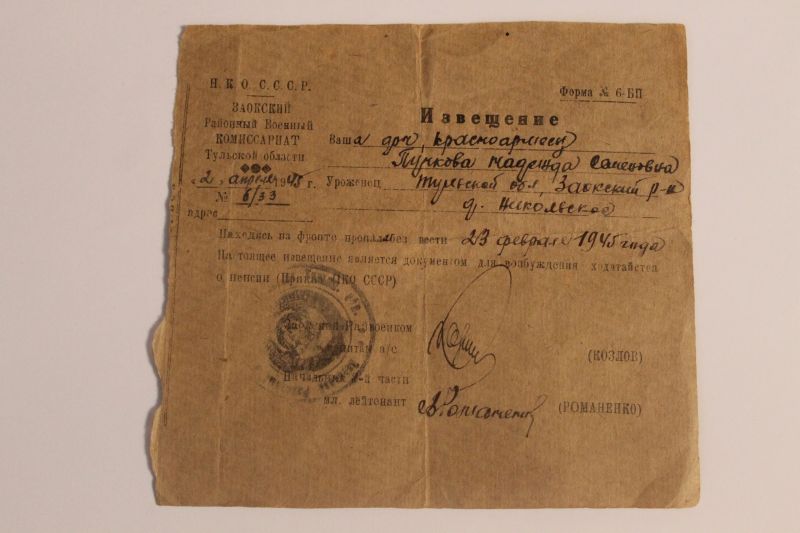 Н. К. О. С. С. С. Р.
ЗАОКСКИЙ
Районный Военный
КОМИССАРИАТ
Тульской области
„2„ апреля 1945 г.
№ 6/33
адрес
Форма № 6-БП
Извещение
Ваша дочь, красноармеец
Пучкова Надежда Семеновна
Уроженец Тульской обл, Заокский р-н
д. Никольское
Находясь на фронте пропала без вести 23 февраля 1945 года
Настоящее извещение является документом для возбуждения ходатайства
о пенсии (Приказ НКО СССР)
Райвоенком
(КОЗЛОВ)
Начальник части
мл. лейтенант
(РОМАНЕНКО)